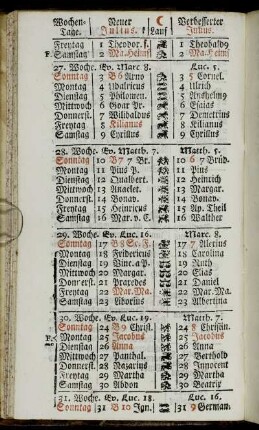 Wochen- Neuer Verbesserter
Tage. Julius. Lauf Julius.
Freytag 1 Theodor. 1 Theobald9
F. Samstag 2 Ma. Heims. 2 Ma. Heims
27. Woche. Ev. Marc. 8. Luc. 5.
Sonntag 3 B 6 Arno 3 5 Cornel.
Montag 4 Udalricus 4 Ulrich
Dienstag 5 Philomen. 5 Anshelm9
Mittwoch 6 Goar Pr. 6 Esaias
Donnerst. 7 Wilibaldus 7 Demetrius
Freytag 8 Kilianus 8 Kilianus
Samstag 9 Cyrillus 9 Cyrillus
28. Woche. Ev. Matth. 7. Matth. 5.
Sonntag 10 B 7 7 Br. 10 6 7 Brüd.
Montag 11 Pius P. 11 Pius
Dienstag 12 Gualbert. 12 Heinrich
Mittwoch 13 Anaclet. 13 Margar.
Donnerst. 14 Bonav. 14 Bonav.
Freytag 15 Henricus 15 Ap. Theil
Samstag 16 Mar. v. C. 16 Walther
29. Woche. Ev. Luc. 16. Marc. 8.
Sonntag 17 B 8 Sc. F. 17 7 Alexius
Montag 18 Fridericus 18 Carolina
Dienstag 19 Vinc. a P. 19 Ruth
Mittwoch 20 Margar. 20 Elias
Donnerst. 21 Praxedes 21 Daniel
Freytag 22 Mar. Ma. 22 Mar. Ma.
Samstag 23 Liborius 23 Albertina
30. Woche. Ev. Luc. 19. Matth. 7.
Sonntag 24 B 9 Christ. 24 8 Christin.
F. Montag 25 Jacobus 25 Jacobus
Dienstag 26 Anna 26 Anna
Mittwoch 27 Panthal. 27 Berthold
Donnerst. 28 Nazarius 28 Innocent
Freytag 29 Martha 29 Martha
Samstag 30 Abdon 30 Beatrix
31. Woche. Ev. Luc. 18. Luc. 16.
Sonntag 31 B 10 Ign. 31 9 German.